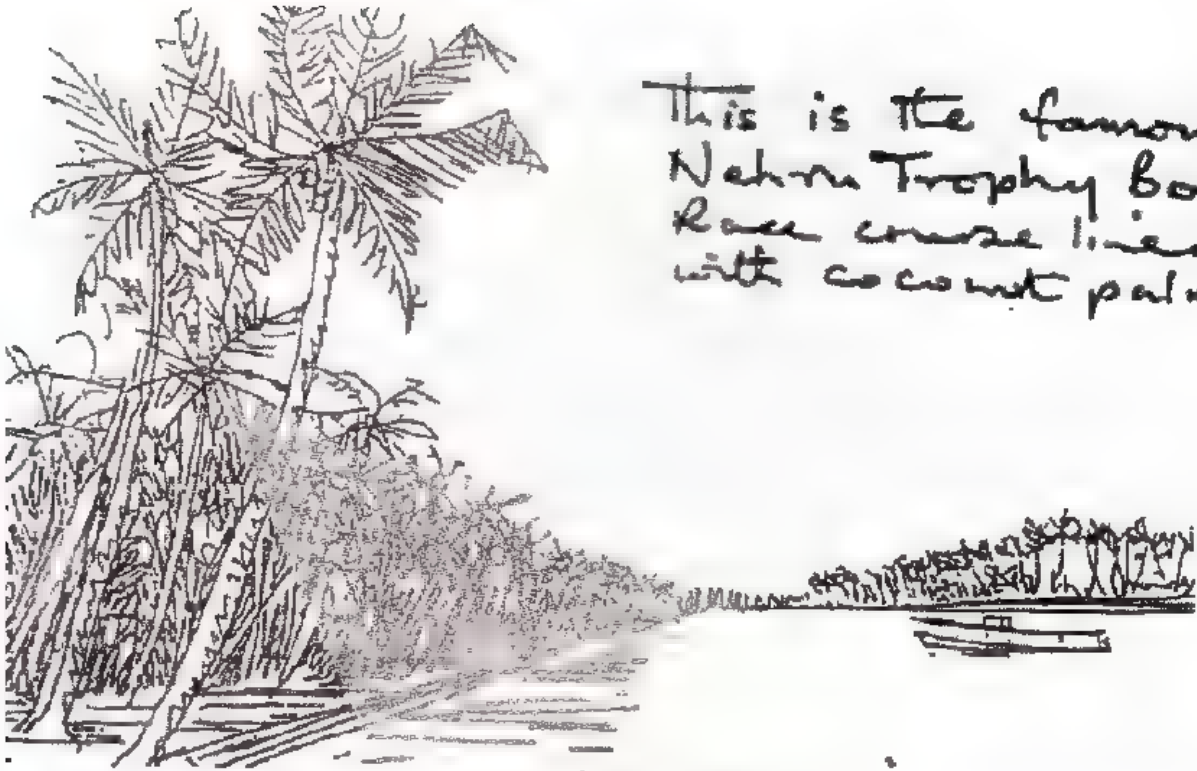 This is the famou
Nehru Trophy bo
Race course line
with coconut pal